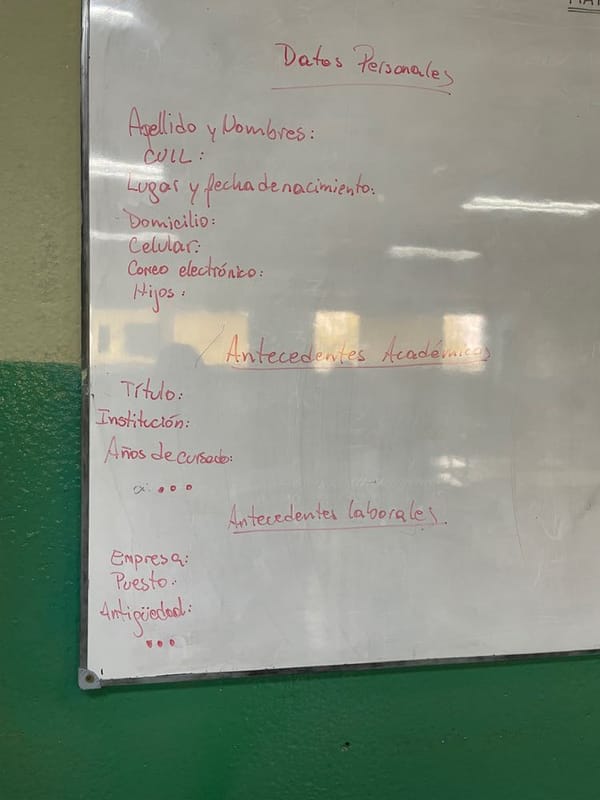 Datos Personales
Apellido y Nombres:
CUIL:
Lugar y fecha de nacimiento:
Domicilio:
Celular:
Correo electrónico:
Hijos:
Antecedentes Académicos
Título:
Institución:
Años de cursado:
...
Antecedentes laborales.
Empresa:
Puesto:
Antigüedad:
...